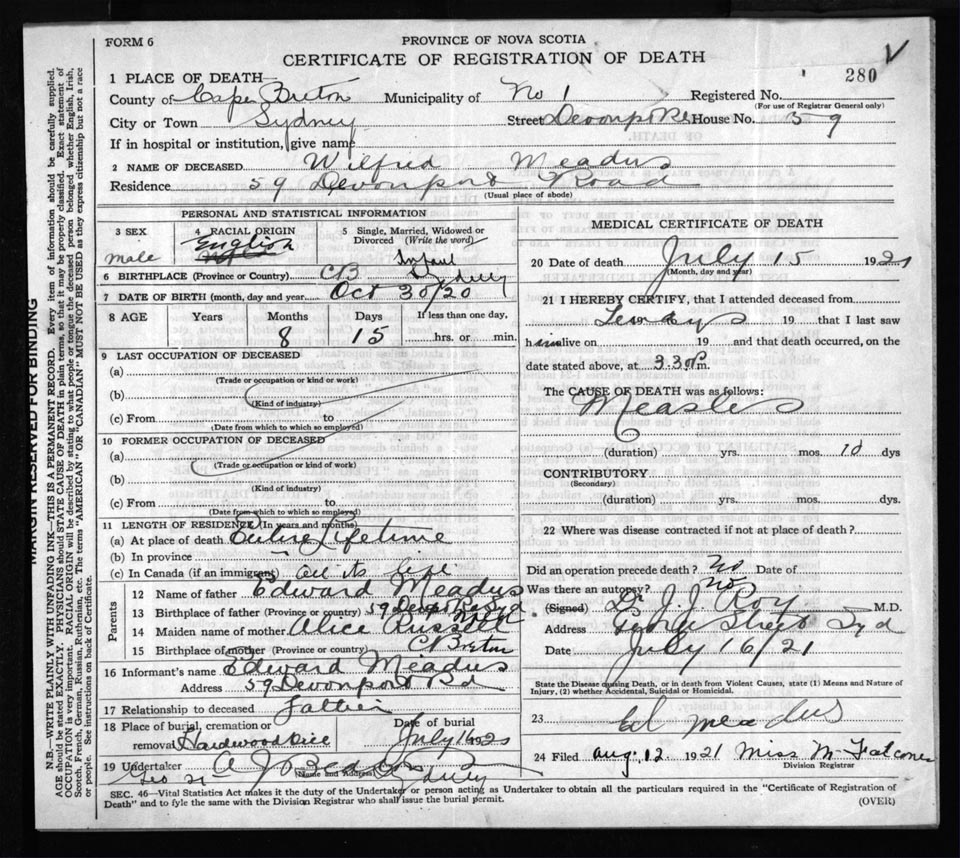 FORM 6
PROVINCE OF NOVA SCOTIA
CERTIFICATE OF REGISTRATION OF DEATH
280
1 PLACE OF DEATH
County of Cape Breton Municipality of No 1 Registered No.
(For use of Registrar General only)
City or Town Sydney Street Devonport Rd House No. 59
If in hospital or institution, give name
2 NAME OF DECEASED Wilfred Meadus
Residence 59 Devonport Road
(Usual place of abode)
PERSONAL AND STATISTICAL INFORMATION
3 SEX
Male
4 RACIAL ORIGIN
English
5 Single, Married, Widowed or Divorced (Write the word)
Infant
6 BIRTHPLACE (Province or Country) CB Sydney
7 DATE OF BIRTH (month, day and year) Oct 30/20
8 AGE Years Months Days If less than one day,
8 15 hrs. or min.
9 LAST OCCUPATION OF DECEASED
(a)
(Trade or occupation or kind or work)
(b)
(Kind of industry)
(c) From to
(Date from which to which so employed)
10 FORMER OCCUPATION OF DECEASED
(a)
(Trade or occupation or kind of work)
(b)
(Kind of industry)
(c) From to
(Date from which to which so employed)
11 LENGTH OF RESIDENCE (In years and months)
(a) At place of death Entire Lifetime
(b) In province "
(c) In Canada (if an immigrant) all its life
Parents
12 Name of father Edward Meadus
13 Birthplace of father (Province or country) 59 Devonport Rd Syd
14 Maiden name of mother Alice Russell
15 Birthplace of mother (Province or country) C Breton
16 Informant's name Edward Meadus
Address 59 Devonport Rd
17 Relationship to deceased Father
18 Place of burial, cremation or removal Hardwood Hill Date of burial July 16 192
19 Undertaker A J Sydney
(Name and Address)
MEDICAL CERTIFICATE OF DEATH
20 Date of death July 15 1921
(Month, day and year)
21 I HEREBY CERTIFY, that I attended deceased from
19 to 19 that I last saw
him alive on 19 and that death occurred, on the
date stated above, at 3.30 P. m.
The CAUSE OF DEATH was as follows:
Measles
(duration) yrs. mos. 10 dys
CONTRIBUTORY
(Secondary)
(duration) yrs. mos. dys.
22 Where was disease contracted if not at place of death?
Did an operation precede death? No Date of
Was there an autopsy? No
(Signed) Dr J. J. Roy M.D.
Address George Street Syd
Date July 16/21
State the Disease causing Death, or in death from Violent Causes, state (1) Means and Nature of Injury, (2) whether Accidental, Suicidal or Homicidal.
23 Ed Meadus
24 Filed Aug. 12 1921 Miss M Falconer
Division Registrar
SEC. 46—Vital Statistics Act makes it the duty of the Undertaker or person acting as Undertaker to obtain all the particulars required in the "Certificate of Registration of
Death" and to fyle the same with the Division Registrar who shall issue the burial permit.
(OVER)
MARGIN RESERVED FOR BINDING
N.B.—WRITE PLAINLY WITH UNFADING INK—THIS IS A PERMANENT RECORD. Every item of information should be carefully supplied.
AGE should be stated EXACTLY. PHYSICIANS should STATE CAUSE OF DEATH in plain terms, so that it may be properly classified. Exact statement of
OCCUPATION is very important. RACIAL ORIGIN will be described by stating to what people or tongue the deceased person belonged whether English, Irish,
Scotch, French, German, Russian, Ruthenian, etc. The terms "AMERICAN" or "CANADIAN" MUST NOT BE USED as they express citizenship but not a race
or people. See instructions on back of Certificate.